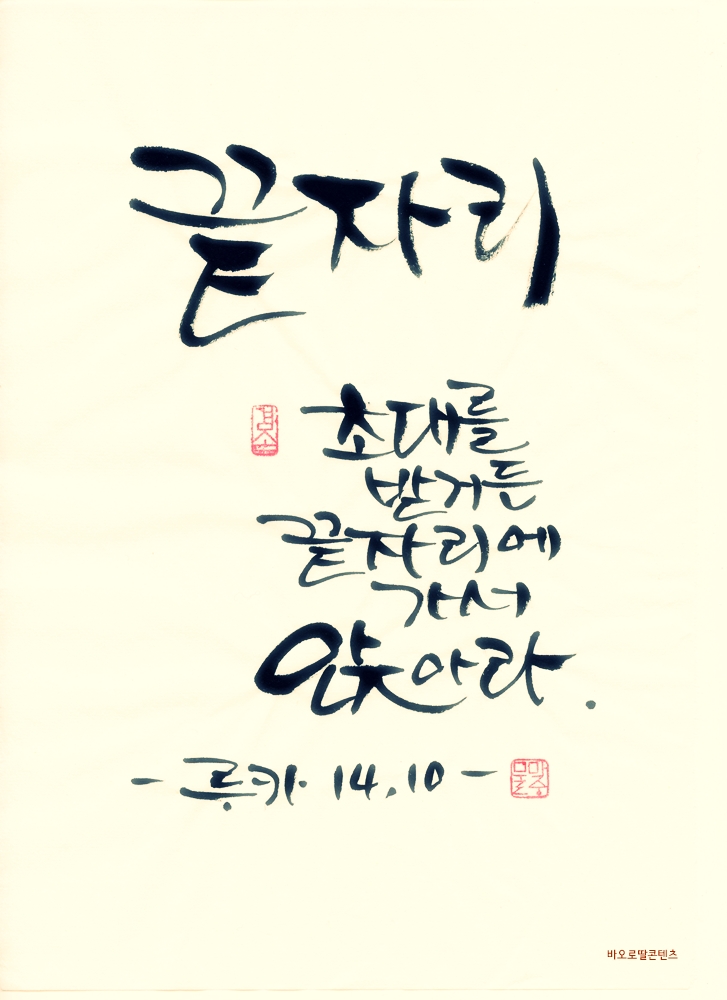 끝자리
겸손
초대를
받거든
끝자리에
가서
앉아라.
- 루카 14.10 -
바오로딸콘텐츠